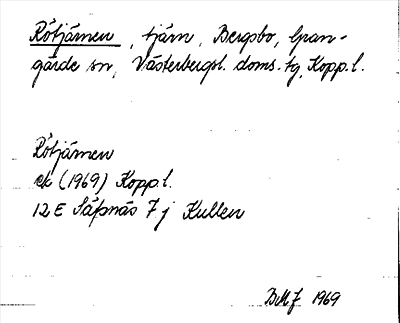 Rötjärnen, tjärn, Bergsbo, Gran-
gärde sn, Västerbergsl. doms. tg, Kopp.l.
Rötjärnen
ek (1969) Kopp.l.
12E Säfsnäs 7j Kullen
1969